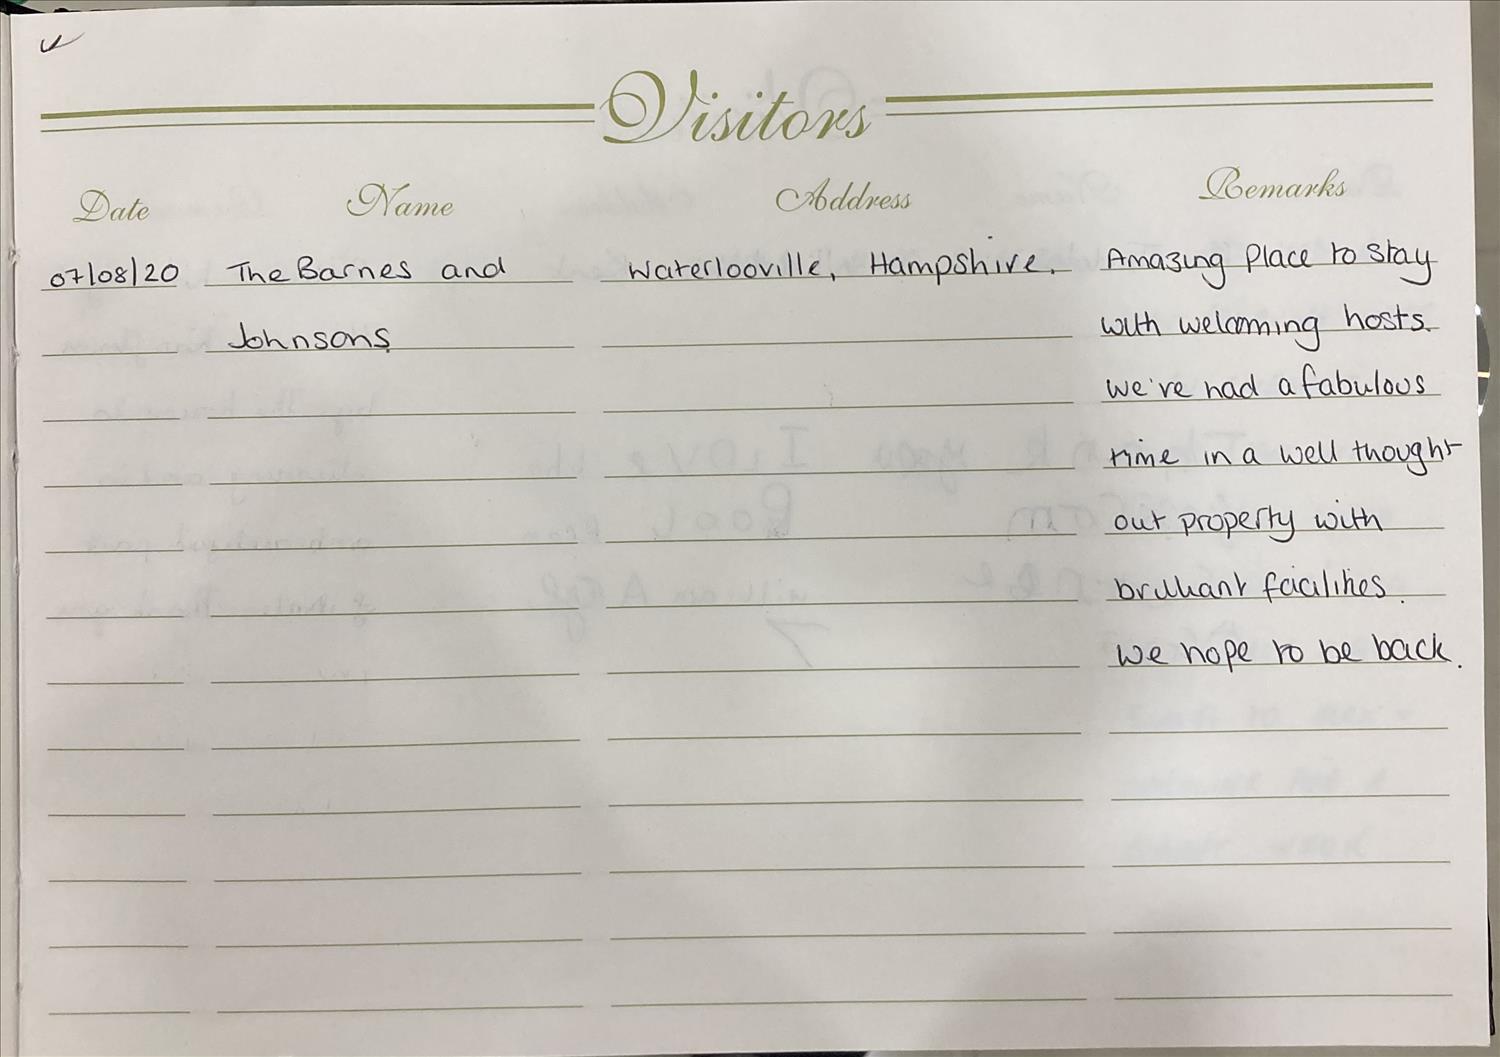 Visitors
Date Name Address Remarks
07/08/20 The Barnes and Waterlooville, Hampshire. Amazing Place to stay
Johnsons with welcoming hosts.
we've had a fabulous
time in a well thought
out property with
brilliant facilities.
we hope to be back.